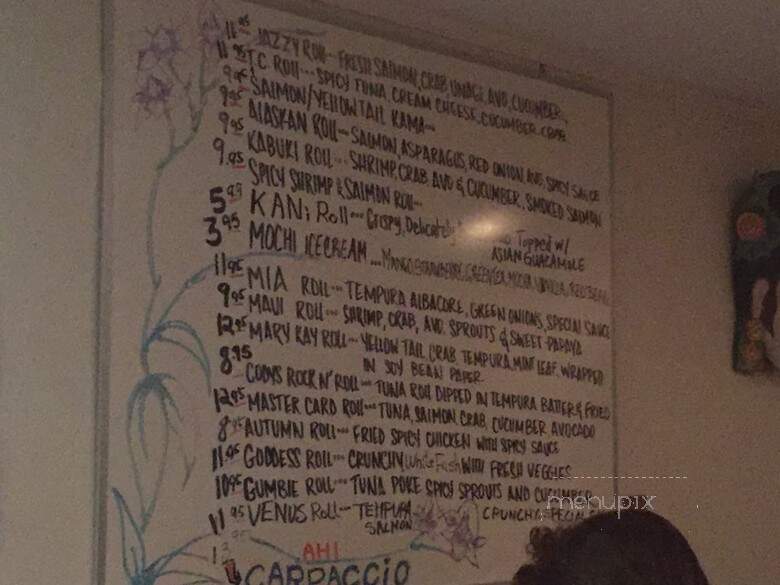 11.95 JAZZY ROLL... FRESH SALMON, CRAB, UNAGI, AVO, CUCUMBER...
11.95 T.C. ROLL... SPICY TUNA CREAM CHEESE, CUCUMBER, CRAB
9.95 SALMON/YELLOWTAIL KAMA...
9.95 ALASKAN ROLL... SALMON, ASPARAGUS, RED ONION, AVO, SPICY SAUCE
9.95 KABUKI ROLL... SHRIMP, CRAB, AVO & CUCUMBER, SMOKED SALMON
9.95 SPICY SHRIMP & SALMON ROLL...
5.99 KANi Roll... Crispy, Delicately Topped w/
ASIAN GUACAMOLE
3.95 MOCHI ICE CREAM ... MANGO, STRAWBERRY, GREEN TEA, MOCHA, VANILLA, RED BEAN
11.95 MIA ROLL... TEMPURA ALBACORE, GREEN ONIONS, SPECIAL SAUCE
9.95 MAUI ROLL... SHRIMP, CRAB, AVO, SPROUTS & SWEET PAPAYA
12.95 MARY KAY ROLL... YELLOW TAIL, CRAB TEMPURA, MINT LEAF, WRAPPED
IN SOY BEAN PAPER
8.95 CODYS ROCK N' ROLL... TUNA ROLL DIPPED IN TEMPURA BATTER & FRIED
12.95 MASTER CARD ROLL... TUNA, SALMON, CRAB, CUCUMBER AVOCADO
8.95 AUTUMN ROLL... FRIED SPICY CHICKEN WITH SPICY SAUCE
11.95 GODDESS ROLL... CRUNCHY White Fish WITH FRESH VEGGIES
10.95 GUMBIE ROLL... TUNA POKE SPICY SPROUTS AND CUCUMBER
11.95 VENUS Roll... TEMPURA CRUNCH
SALMON
AHI
CARPACCIO
menupix